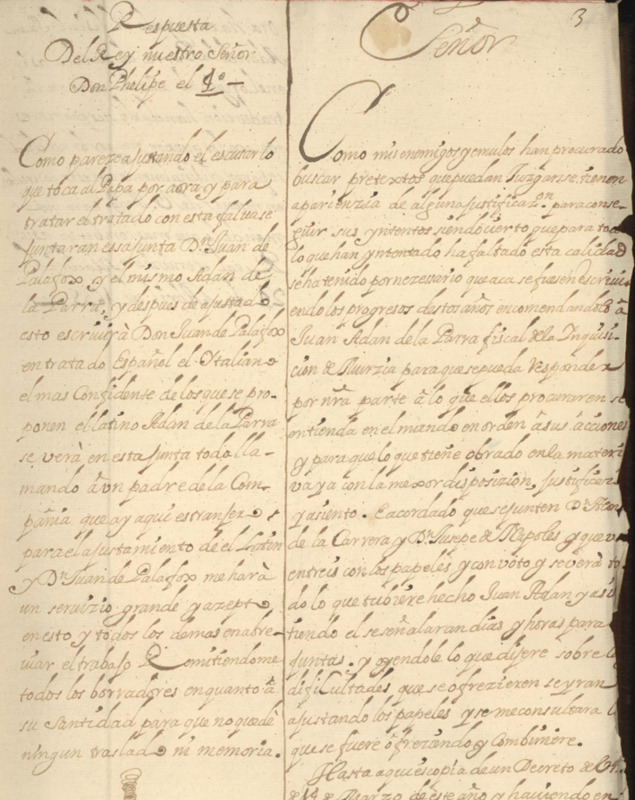 Respuesta
Del Rey nuestro Señor
Don Phelipe el 4º
Como parezca justando el escusar lo
que toca al Papa por aora y para
tratar el tratado con esta salua se
Juntaran essa Junta Dn Juan de
Palafox y el mismo Adan de
la Parra, y despues de ajustado
esto escriuirà Don Juan de Palafox
en tratado Español el Italiano
el mas Confidente de los que se pro-
ponen el latino Adan de la Parra
se verà en esta junta todo lla-
mando â vn padre de la Com-
pañia que ay aqui estranfero
para el ajustamiento de el Latin
y Dn Juan de Palafox me harà
un seruizio grande y azepto
en esto y todos los demas en abre-
uiar el trabajo Remitiendome
todos los borradores en quanto â
su Santidad para que no quede
ningun traslado ni memoria.
3
Señor
Como mis enemigos y emulos han procurado
buscar pretextos que puedan Juzgarse tienen
aparienzia de alguna justificazon para conse-
guir sus yntentos siendo cierto que para todo
lo que han yntentado ha faltado esta calidad
se ha tenido por nezessario que aca se fuesen escriui-
endo los progresos destos años encomendandolo â
Juan Adan de la Parra fiscal de la Inquisi-
cion de Murzia para que se pueda Responder
por nrâ parte â lo que ellos procuraren se
entienda en el mundo en orden â sus acciones
y para que lo que tiene obrado en la materia
vaya con la mexor disposizion, justificazi
y asiento. E acordado que se junten Dn Alon
de la Carrera y Dn Jusepe de Napoles y que v
entreis con los papeles y con voto y se verâ to
do lo que tubiere hecho Juan Adan y asis
tiendo el se señalaran dias y horas para
juntas. y oyendole lo que dijere sobre l
dificultades que se ofrezieren se yran
ajustando los papeles y se me consultara l
que se fuere ofrezando y combiniere.
Hasta aqui es copia de un Decreto de
de 14 de Marzo de este año y haviendo en